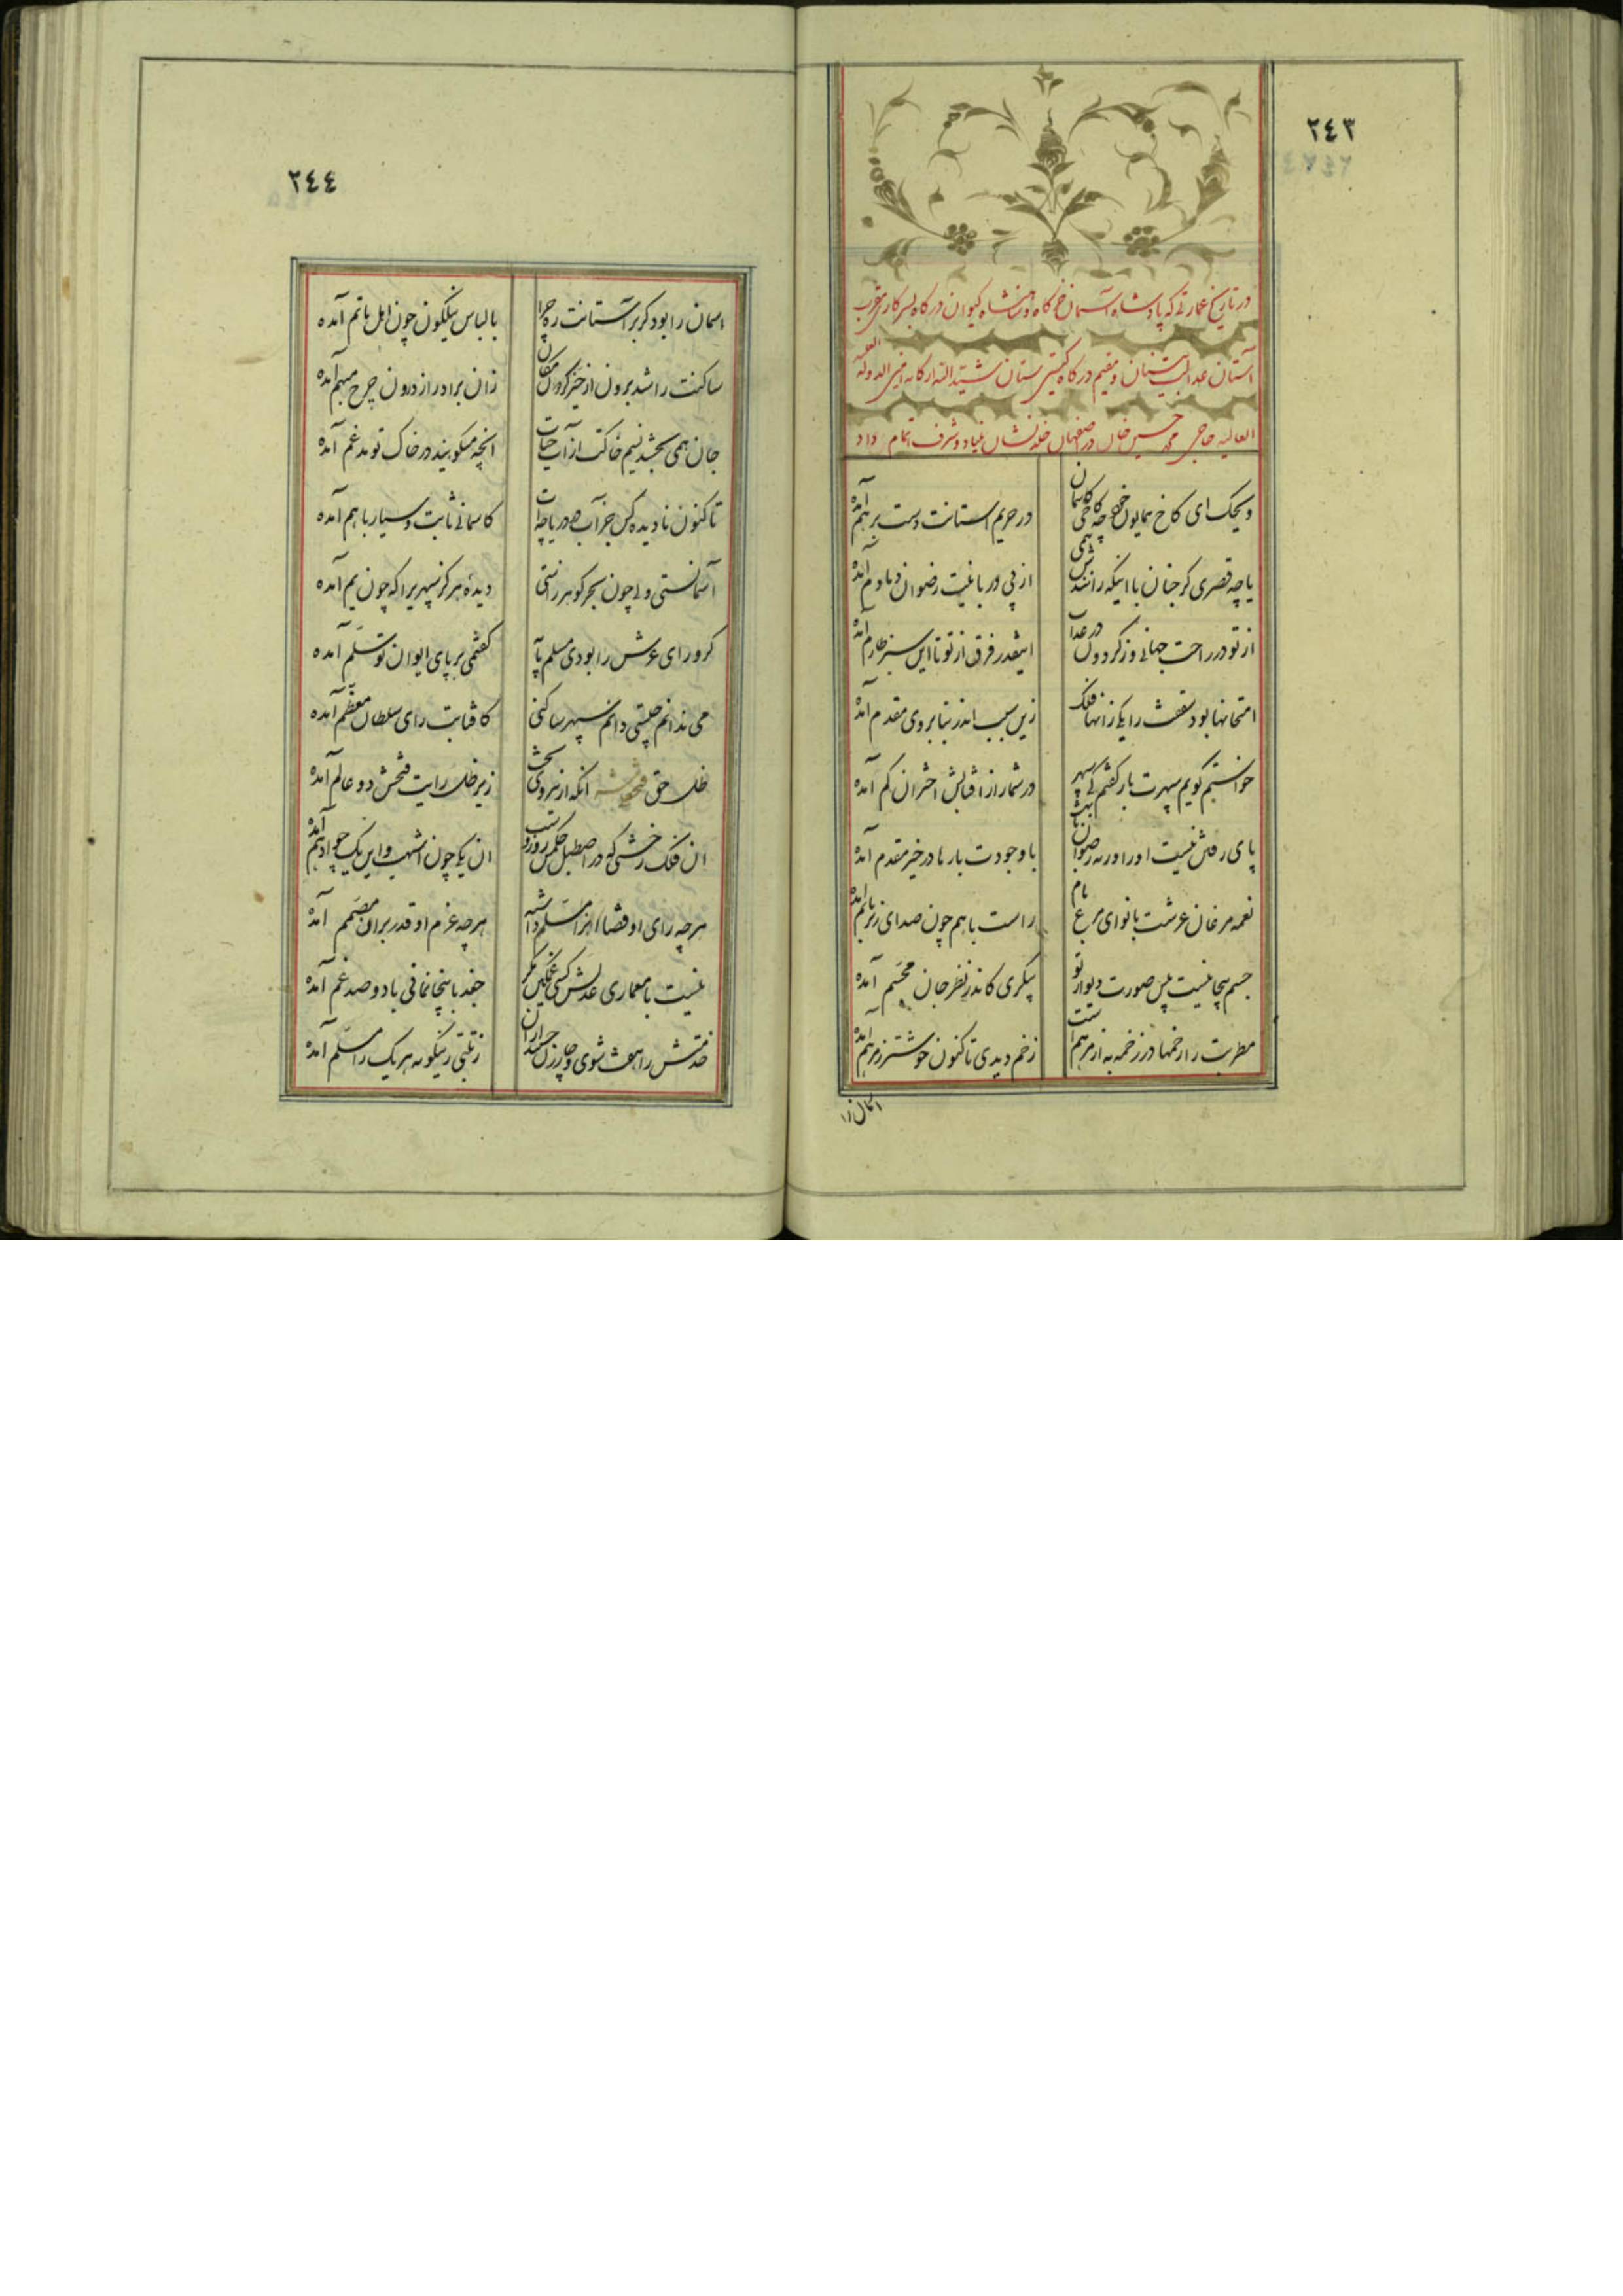 ٢٤٣
در تاریخ عمارتی که پادشاه آسمان خرگاه و شاهنشاه کیوان درگاه بسرکاری مقرب
آستان عدالت بنیان و مقیم درگاه گیتی ستان شید الله ارکانه امین الدوله
العالیه حاجی محمد حسین خان در اصفهان خلد نشان بنیاد و شرف اتمام داد
ویحک ای کاخ همایون خود چه کاخی کاسمان در حریم آستانت دست بر هم آمده
یا چه قصری کز جنان با اینکه رانندش همی از پی دربانیت رضوان دمادم آمده
از تو در راحت جهانی وز گردون در عذاب اینقدر فرق از تو تا این سبز طارم آمده
امتحانها بود سقفت را یکی زانها فلک زین سبب اندر بنا بروی مقدم آمده
خواستم گویم سپهرت باز گفتم کی سپهر در شمار از نقابش اختران کم آمده
پای رفتن نیست او را ورنه رضوان با وجودت بارها در خیر مقدم آمده
نغمه مرغان عرشت با نوای مرغ بام راست با هم چون صدای زیر با بم آمده
جسم بیجا نیست پس صورت دیوار تو پیکری کاندر نظر جان مجسم آمده
مطربت را زخمها در زخمه به از مرهم است زخم دیدی تا کنون خوشتر ز مرهم آمده
اسمان را
٢٤٤
اسمان را بود گر بر آستانت ره چرا با لباس نیلگون چون اهل ماتم آمده
ساکنت را شد برون از حیز گردون مکان زان برادر راز درون چرخ مبهم آمده
جان همی بخشد نسیم خاکت از آب حیات انچه میگویند در خاک تو مدغم آمده
تا کنون نادیده کس جز آب در دریاچه‌ات کاسمانی ثابت و سیار با هم آمده
آسمانستی ولی چون بحر گوهر زاستی دیده هرگز سپهریرا که چون یم آمده
گر ورای عرش را بودی مسلم پایه گفتمی بر پای ایوان تو سلم آمده
می ندانم چیستی دانم سپهر ساکنی کافتابت رای سلطان معظم آمده
ظل حق فتحعلیشه انکه از نیروی بخت زیر ظل رایت فتحش دو عالم آمده
ان فلک رخشی که در اصطبل حکمش روز و شب ان یکی چون اشهب و این یک چو ادهم آمده
هرچه رای او قضا انرا مسلم داشته هرچه عزم او قدر بران مصمم آمده
نیست با معماری عدلش کسی غمگین مگر جغد با بیخانمانی با دو صد غم آمده
خدمتش را هفت شوی و چار زن ز نیکونه هر یک را مسلم آمده